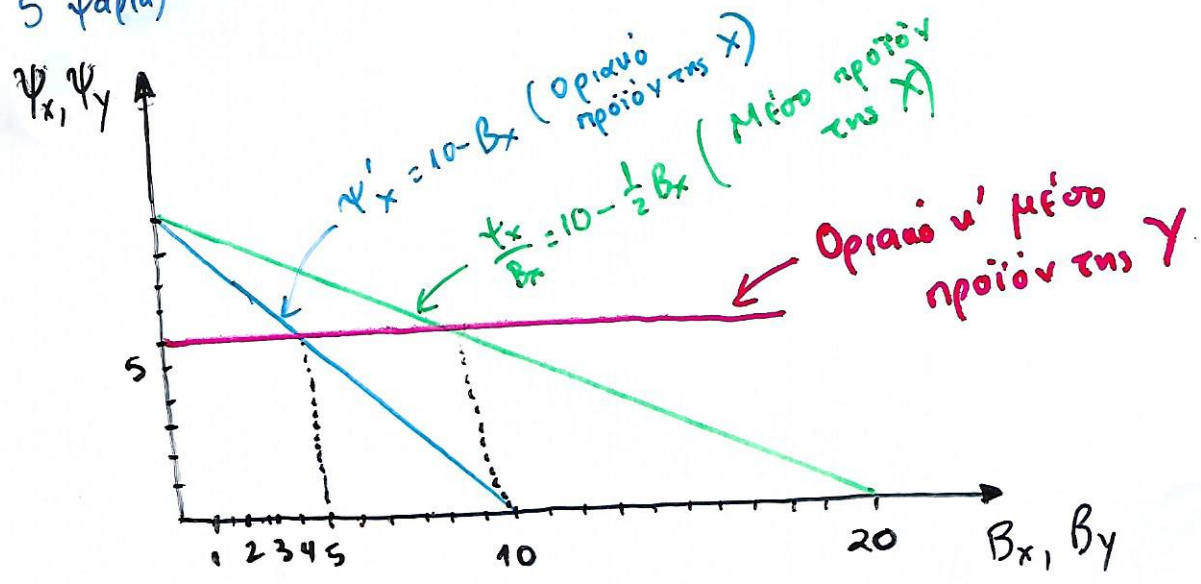 5 ψάρια)
Ψx, Ψy
Ψ'x = 10 - Βx (Οριακό
προϊόν της X)
Ψx/Βx = 10 - 1/2 Βx (Μέσο προϊόν
της X)
Οριακό κ' μέσο
προϊόν της Y
5
1 2 3 4 5 10 20 Βx, Βy